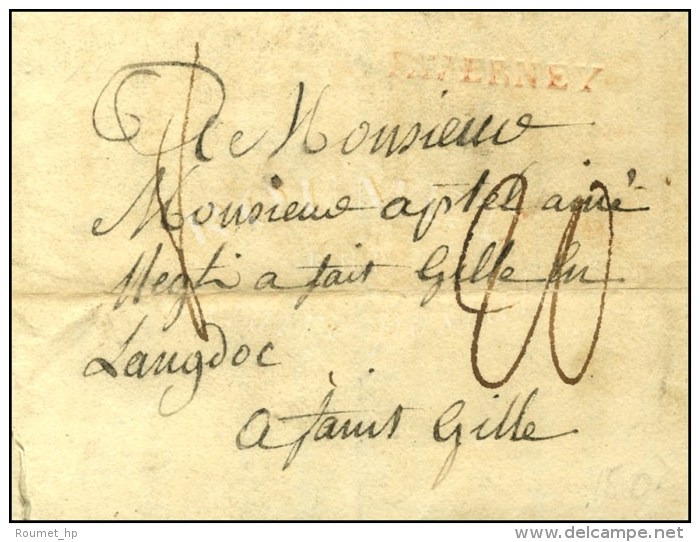 FAVERNEY
A Monsieur
Monsieur aptel ainé
Negt a fait Gille en
Langdoc
a faint Gille
20
Roumet_hp
© delcampe.net